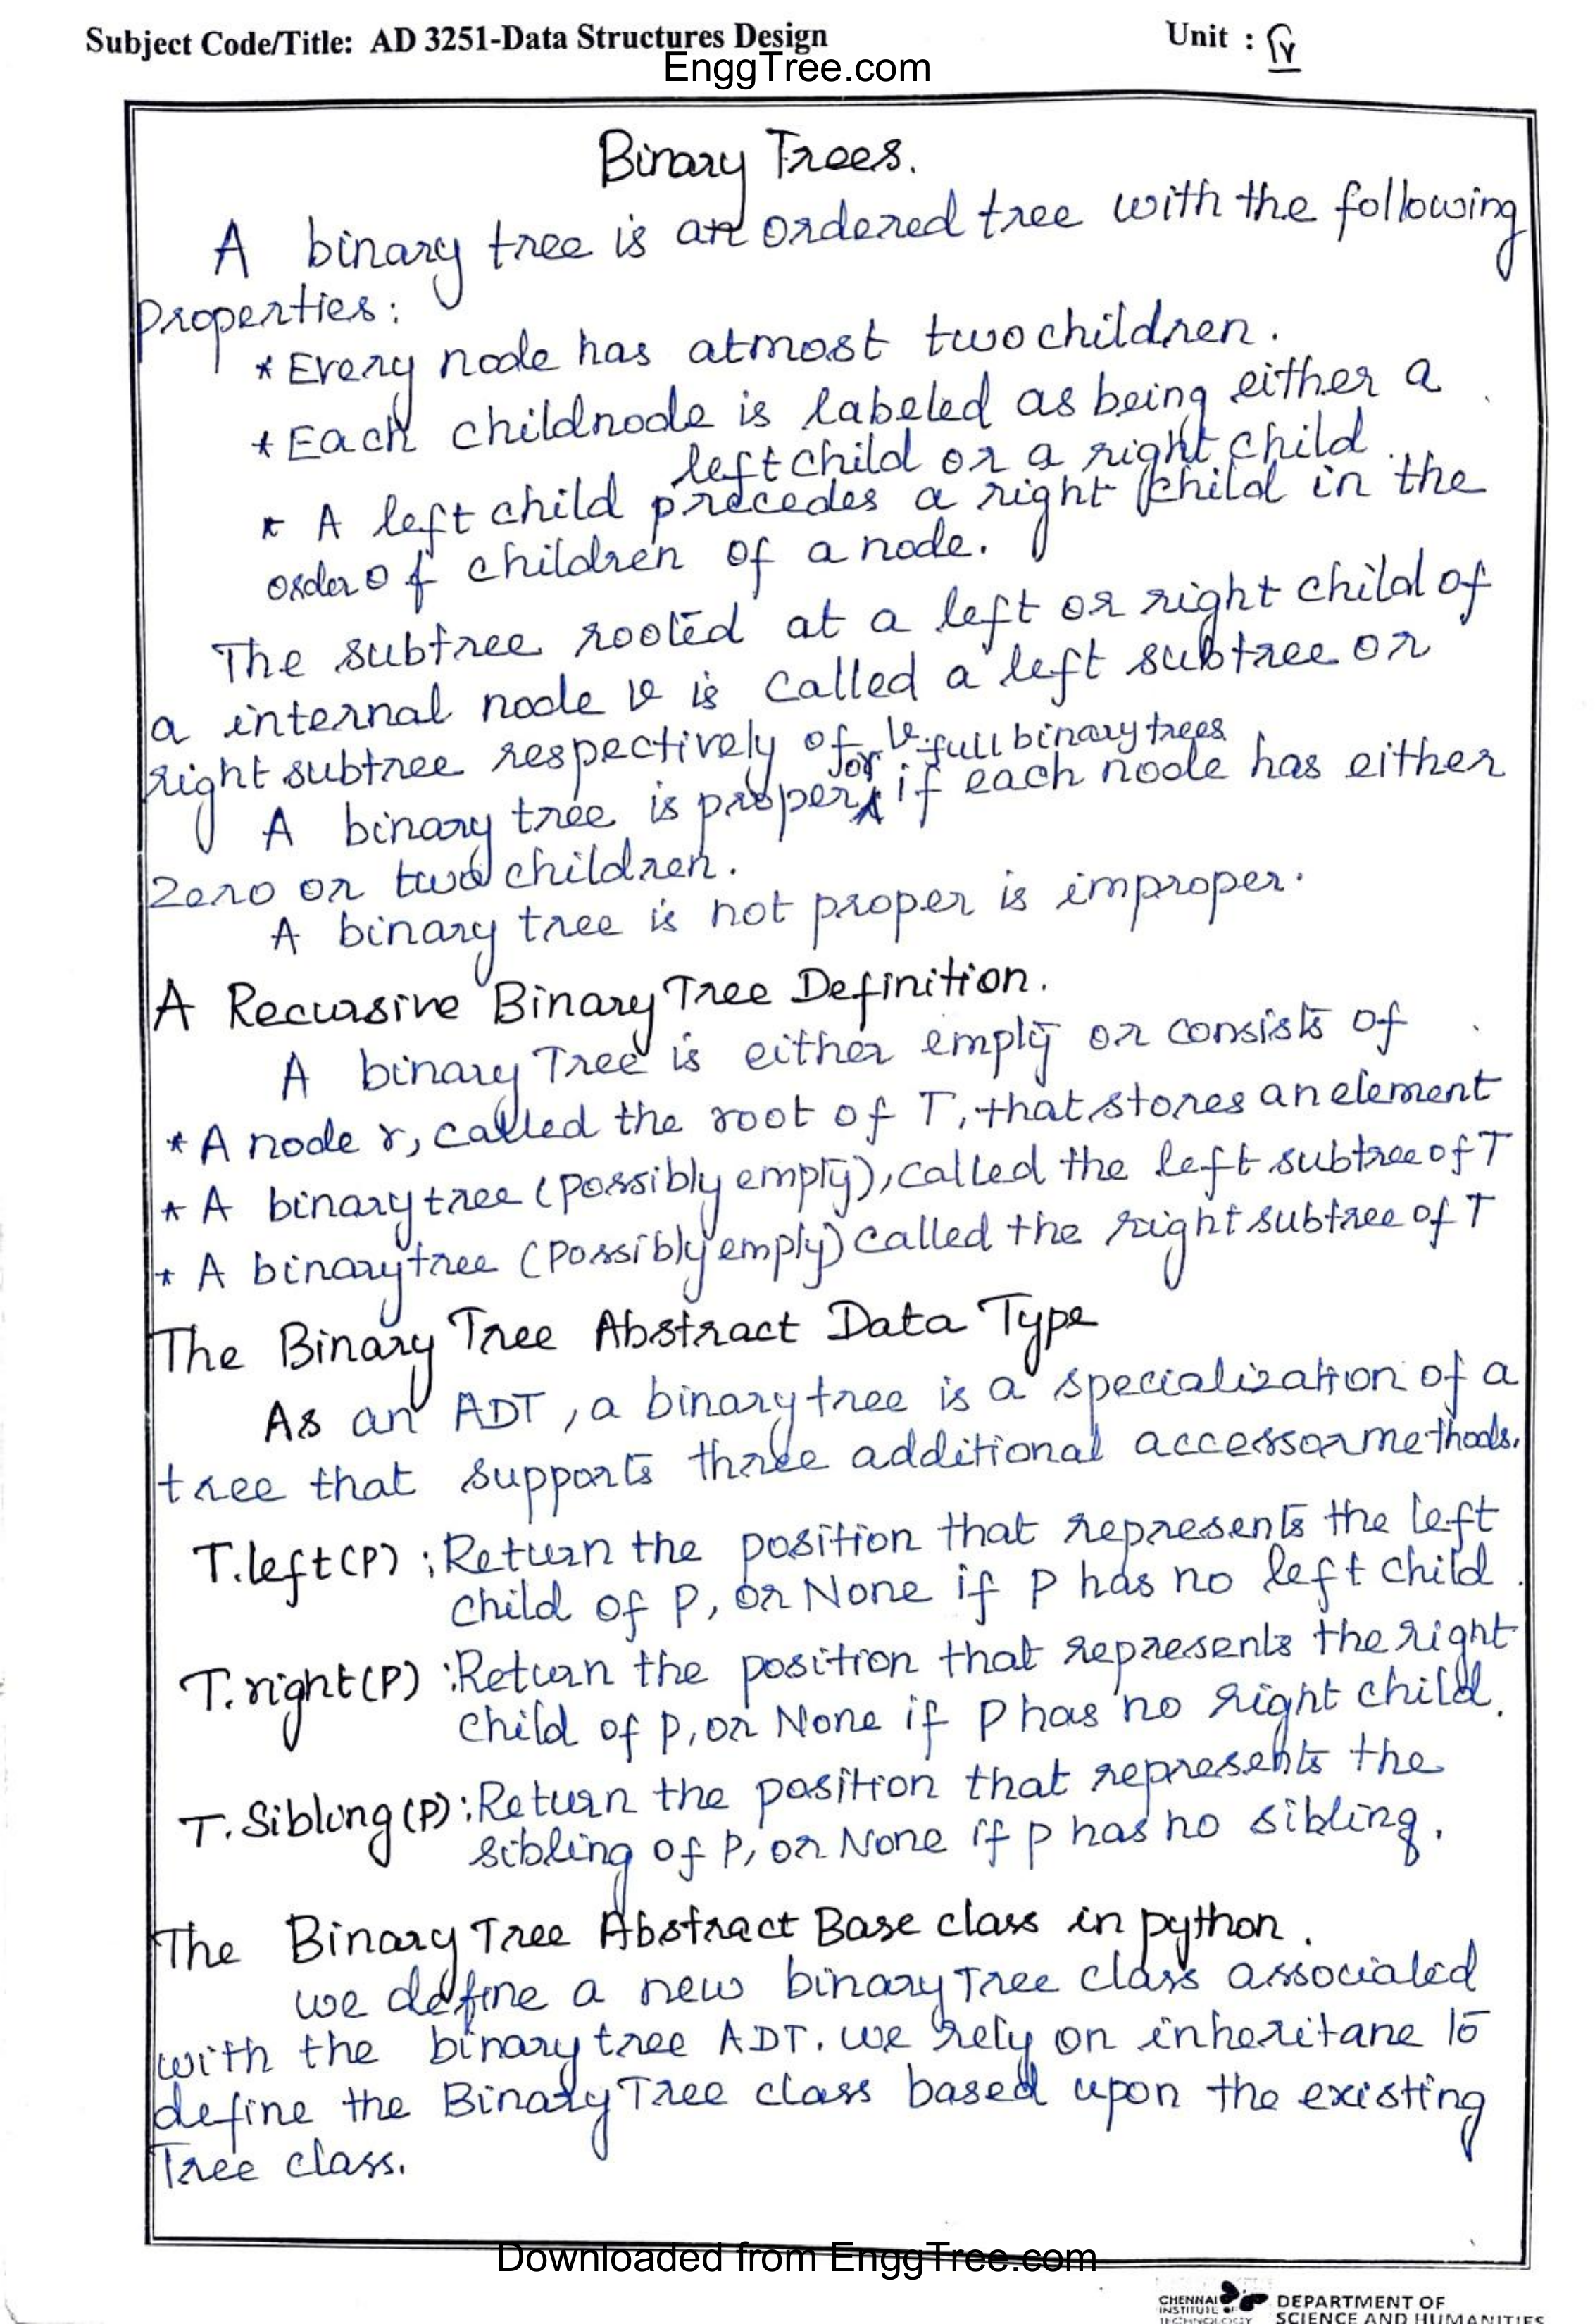 Subject Code/Title: AD 3251-Data Structures Design Unit : IV
EnggTree.com
Binary Trees.
A binary tree is an ordered tree with the following
properties:
* Every node has atmost two children.
* Each childnode is labeled as being either a
left child or a right child
* A left child precedes a right child in the
order of children of a node.
The subtree rooted at a left or right child of
a internal node v is called a left subtree or
right subtree respectively of v.
or full binary trees
A binary tree is proper if each node has either
zero or two children.
A binary tree is not proper is improper.
A Recursive Binary Tree Definition.
A binary Tree is either empty or consists of
* A node r, called the root of T, that stores an element
* A binary tree (possibly empty), called the left subtree of T
* A binary tree (possibly empty) called the right subtree of T
The Binary Tree Abstract Data Type
As an ADT, a binary tree is a specialization of a
tree that supports three additional accessor methods.
T.left(P) : Return the position that represents the left
child of P, or None if P has no left child.
T.right(P) : Return the position that represents the right
child of p, or None if P has no right child.
T.Sibling(P) : Return the position that represents the
sibling of P, or None if p has no sibling.
The Binary Tree Abstract Base class in python.
we define a new binary Tree class associated
with the binary tree ADT. we rely on inheritane to
define the Binary Tree class based upon the existing
Tree class.
Downloaded from EnggTree.com
CHENNAI
INSTITUTE OF
TECHNOLOGY
DEPARTMENT OF
SCIENCE AND HUMANITIES